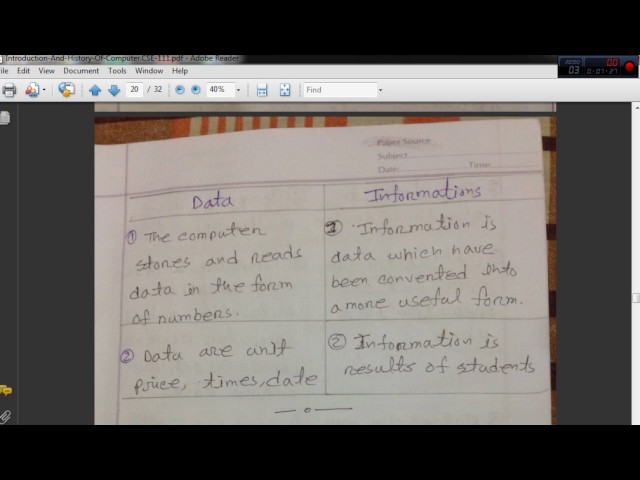 Introduction-And-History-Of-Computer.CSE-111.pdf - Adobe Reader
File Edit View Document Tools Window Help
20 / 32 40% Find
03 00
Paper Source
Subject
Date: Time:
Data
Informations
① The computer
stores and reads
data in the form
of numbers.
① Information is
data which have
been converted into
a more useful form.
② Data are unit
price, times, date
② Information is
results of students